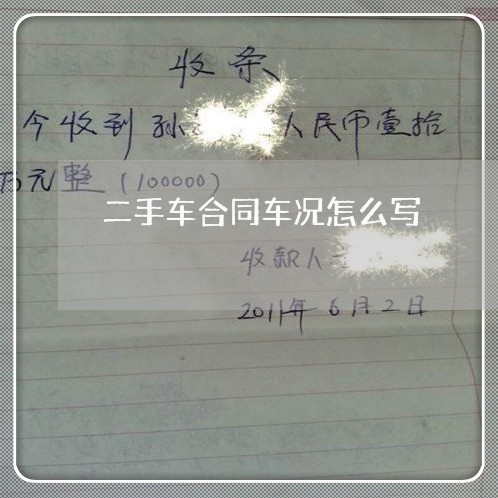 收条
今收到孙人民币壹拾
万元整(100000)
二手车合同车况怎么写
收款人
2011年6月2日